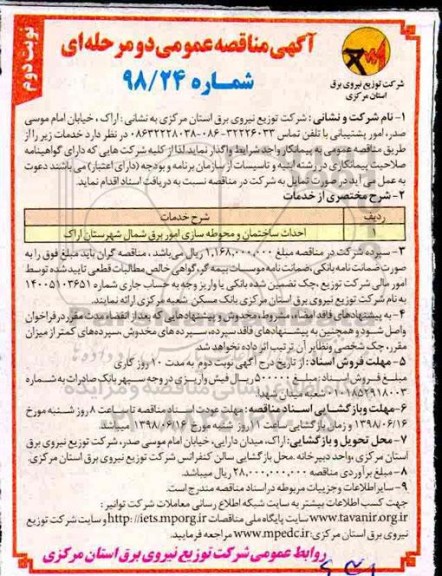 نوبت دوم
آگهی مناقصه عمومی دو مرحله ای
شماره ۹۸/۲۴
شرکت توزیع نیروی برق
استان مرکزی
۱- نام شرکت و نشانی : شرکت توزیع نیروی برق استان مرکزی به نشانی : اراک ، خیابان امام موسی
صدر، امور پشتیبانی با تلفن تماس ۳۲۲۲۶۰۳۳-۰۸۶ ۰۸۶۳۲۲۲۸۰۳۸ در نظر دارد خدمات زیر را از
طریق مناقصه عمومی به پیمانکار واجد شرایط واگذار نماید لذا از کلیه شرکت هایی که دارای گواهینامه
صلاحیت پیمانکاری در رشته ابنیه و تاسیسات از سازمان برنامه و بودجه (دارای اعتبار) می باشند دعوت
به عمل می آید در صورت تمایل به شرکت در مناقصه نسبت به دریافت اسناد اقدام نماید.
۲- شرح مختصری از خدمات
ردیف شرح خدمات
۱ احداث ساختمان و محوطه سازی امور برق شمال شهرستان اراک
۳- سپرده شرکت در مناقصه مبلغ ۱,۱۶۸,۰۰۰,۰۰۰ ریال می باشد ، مناقصه گران باید مبلغ فوق را به
صورت ضمانت نامه بانکی ،ضمانت نامه موسسات بیمه گر،گواهی خالص مطالبات قطعی تایید شده توسط
امور مالی شرکت توزیع ،چک تضمین شده بانکی یا واریز وجه به حساب جاری شماره ۱۴۰۰۵۱۰۳۶۵۱
به نام شرکت توزیع نیروی برق استان مرکزی بانک مسکن شعبه مرکزی ارائه نمایند.
۴- به پیشنهادهای فاقد امضاء، مشروط، مخدوش و پیشنهادهایی که بعد از انقضاء مدت مقرر در فراخوان
واصل شود و همچنین به پیشنهادهای فاقد سپرده، سپرده های مخدوش ،سپرده‌های کمتر از میزان
مقرر، چک شخصی ونظایر آن ترتیب اثر داده نخواهد شد.
۵- مهلت فروش اسناد : از تاریخ درج آگهی نوبت دوم به مدت ۱۰ روز کاری
مبلغ فروش اسناد : مبلغ ۵۰۰۰۰۰ ریال فیش واریزی در وجه سپهر بانک صادرات به شماره
۰۱۰۱۸۵۲۹۱۸۰۰۳ شعبه میدان شهدا
۶- مهلت وبازگشایی اسناد مناقصه : مهلت عودت اسناد مناقصه تا ساعت ۸ روز شنبه مورخ
۱۳۹۸/۰۶/۱۶ و زمان بازگشایی ساعت ۱۲ روز شنبه مورخ ۱۳۹۸/۰۶/۱۶ میباشد.
۷- محل تحویل و بازگشایی: اراک، میدان دارایی، خیابان امام موسی صدر، شرکت توزیع نیروی برق
استان مرکزی ،واحد دبیرخانه. محل بازگشایی سالن کنفرانس شرکت توزیع نیروی برق استان مرکزی.
۸- مبلغ برآوردی مناقصه ۲۸,۰۰۰,۰۰۰,۰۰۰ ریال میباشد.
۹- سایر اطلاعات و جزییات مربوطه در اسناد مناقصه مندرج است.
جهت کسب اطلاعات بیشتر به سایت شبکه اطلاع رسانی معاملات شرکت توانیر :
www.tavanir.org.ir سایت پایگاه ملی مناقصات http://iets.mporg.ir و سایت شرکت توزیع
نیروی برق استان مرکزی: www.mpedc.ir مراجعه فرمایید.
روابط عمومی شرکت توزیع نیروی برق استان مرکزی